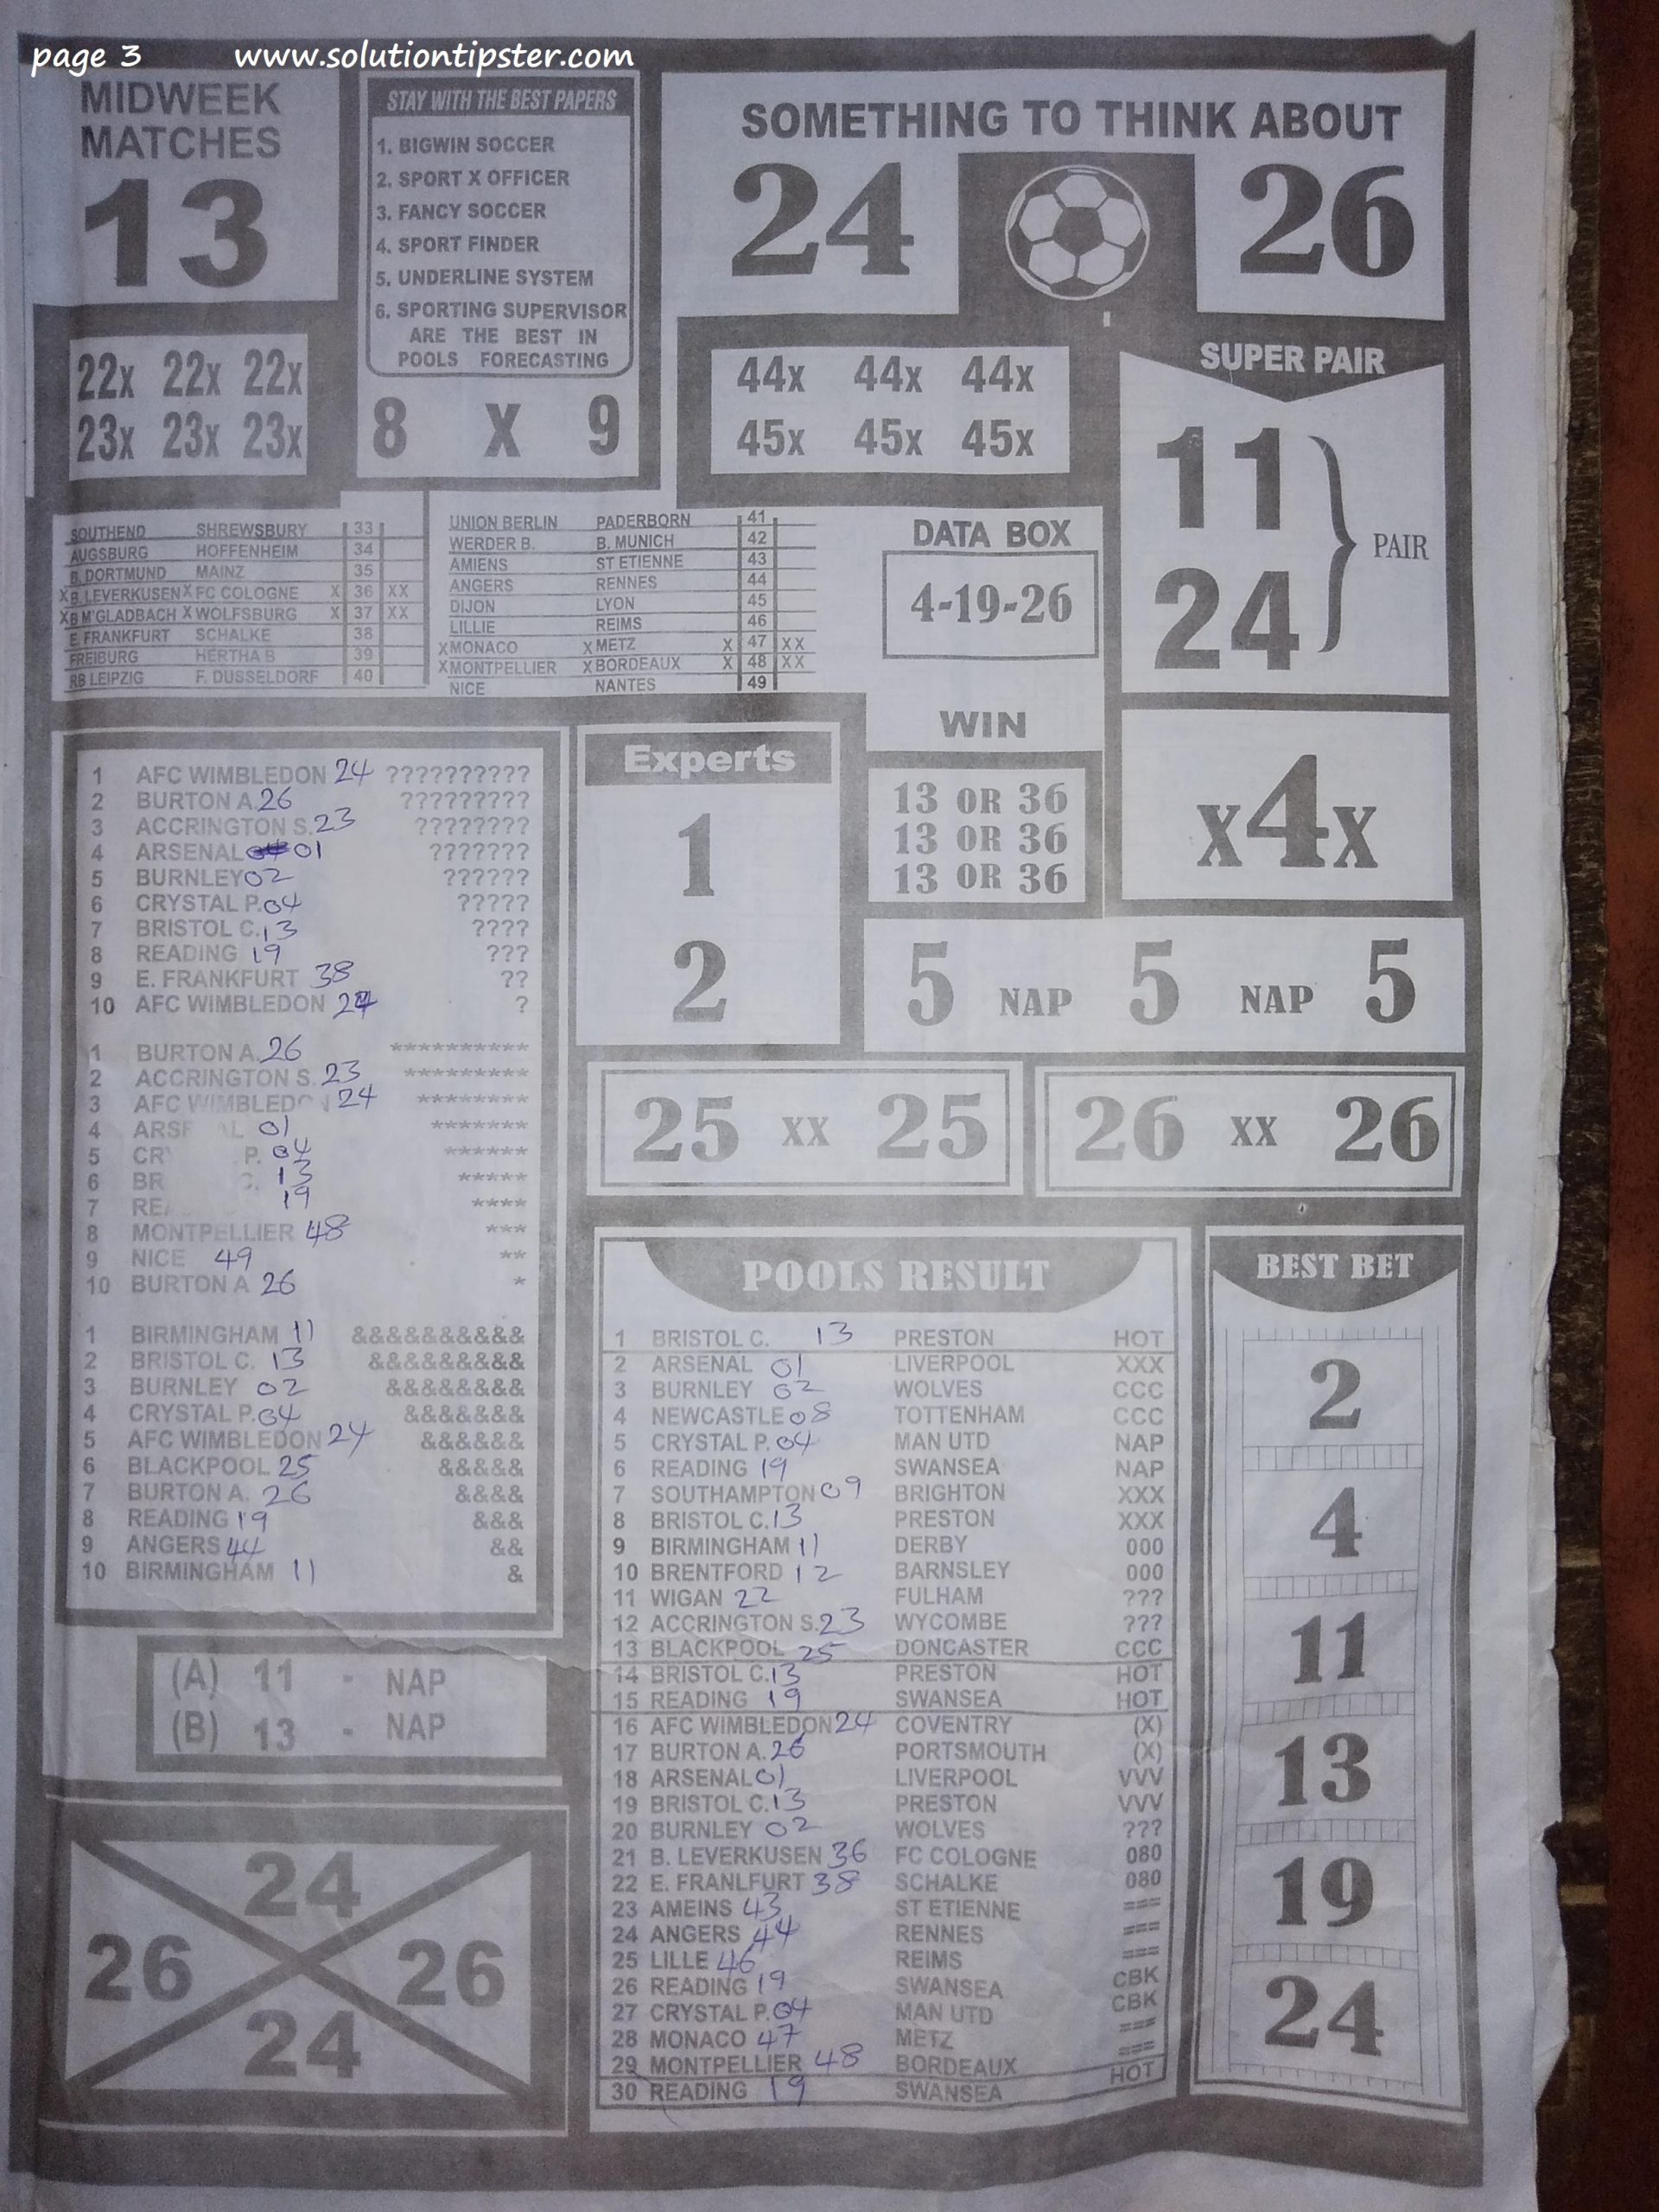 page 3 www.solutiontipster.com
MIDWEEK
MATCHES
13
22x 22x 22x
23x 23x 23x
STAY WITH THE BEST PAPERS
1. BIGWIN SOCCER
2. SPORT X OFFICER
3. FANCY SOCCER
4. SPORT FINDER
5. UNDERLINE SYSTEM
6. SPORTING SUPERVISOR
ARE THE BEST IN
POOLS FORECASTING
8 X 9
SOMETHING TO THINK ABOUT
24 26
44x 44x 44x
45x 45x 45x
SUPER PAIR
11
24
PAIR
SOUTHEND SHREWSBURY 33
AUGSBURG HOFFENHEIM 34
B. DORTMUND MAINZ 35
X B. LEVERKUSEN X FC COLOGNE X 36 XX
X B M'GLADBACH X WOLFSBURG X 37 XX
E FRANKFURT SCHALKE 38
FREIBURG HERTHA B 39
RB LEIPZIG F. DUSSELDORF 40
UNION BERLIN PADERBORN 41
WERDER B. B. MUNICH 42
AMIENS ST ETIENNE 43
ANGERS RENNES 44
DIJON LYON 45
LILLIE REIMS 46
X MONACO X METZ X 47 XX
X MONTPELLIER X BORDEAUX X 48 XX
NICE NANTES 49
DATA BOX
4-19-26
WIN
13 OR 36
13 OR 36
13 OR 36
X4X
1 AFC WIMBLEDON 24 ??????????
2 BURTON A. 26 ?????????
3 ACCRINGTON S. 23 ????????
4 ARSENAL 01 ???????
5 BURNLEY 02 ??????
6 CRYSTAL P. 04 ?????
7 BRISTOL C. 13 ????
8 READING 19 ???
9 E. FRANKFURT 38 ??
10 AFC WIMBLEDON 24 ?
1 BURTON A. 26 **********
2 ACCRINGTON S. 23 *********
3 AFC WIMBLEDON 24 ********
4 ARS AL 01 *******
5 CR P. 04 ******
6 BR C. 13 *****
7 REA 19 ****
8 MONTPELLIER 48 ***
9 NICE 49 **
10 BURTON A 26 *
1 BIRMINGHAM 11 &&&&&&&&&&
2 BRISTOL C. 13 &&&&&&&&&
3 BURNLEY 02 &&&&&&&&
4 CRYSTAL P. 04 &&&&&&&
5 AFC WIMBLEDON 24 &&&&&&
6 BLACKPOOL 25 &&&&&
7 BURTON A. 26 &&&&
8 READING 19 &&&
9 ANGERS 44 &&
10 BIRMINGHAM 11 &
Experts
1
2
5 NAP 5 NAP 5
25 XX 25
26 XX 26
(A) 11 - NAP
(B) 13 - NAP
24
26 26
24
POOLS RESULT
1 BRISTOL C. 13 PRESTON HOT
2 ARSENAL 01 LIVERPOOL XXX
3 BURNLEY 02 WOLVES CCC
4 NEWCASTLE 08 TOTTENHAM CCC
5 CRYSTAL P. 04 MAN UTD NAP
6 READING 19 SWANSEA NAP
7 SOUTHAMPTON 09 BRIGHTON XXX
8 BRISTOL C. 13 PRESTON XXX
9 BIRMINGHAM 11 DERBY 000
10 BRENTFORD 12 BARNSLEY 000
11 WIGAN 22 FULHAM ???
12 ACCRINGTON S. 23 WYCOMBE ???
13 BLACKPOOL 25 DONCASTER CCC
14 BRISTOL C. 13 PRESTON HOT
15 READING 19 SWANSEA HOT
16 AFC WIMBLEDON 24 COVENTRY (X)
17 BURTON A. 26 PORTSMOUTH (X)
18 ARSENAL 01 LIVERPOOL VVV
19 BRISTOL C. 13 PRESTON VVV
20 BURNLEY 02 WOLVES ???
21 B. LEVERKUSEN 36 FC COLOGNE 080
22 E. FRANLFURT 38 SCHALKE 080
23 AMEINS 43 ST ETIENNE ===
24 ANGERS 44 RENNES ===
25 LILLE 46 REIMS ===
26 READING 19 SWANSEA CBK
27 CRYSTAL P. 04 MAN UTD CBK
28 MONACO 47 METZ ===
29 MONTPELLIER 48 BORDEAUX ===
30 READING 19 SWANSEA HOT
BEST BET
2
4
11
13
19
24